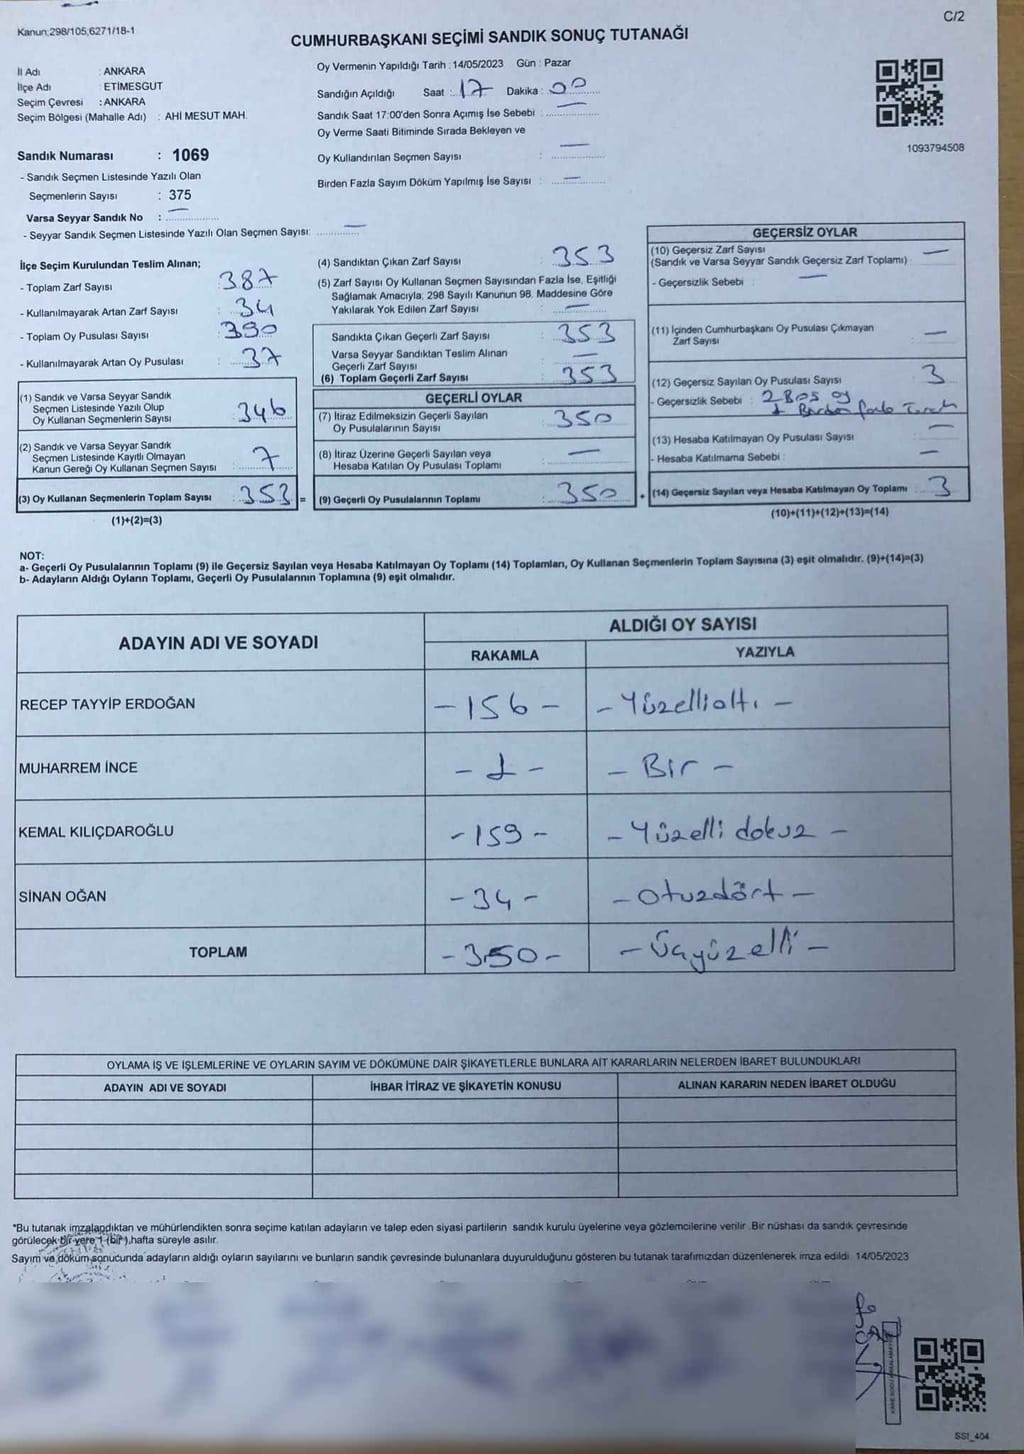 Kanun;298/105,6271/18-1
C/2
CUMHURBAŞKANI SEÇİMİ SANDIK SONUÇ TUTANAĞI
İl Adı : ANKARA
İlçe Adı : ETİMESGUT
Seçim Çevresi : ANKARA
Seçim Bölgesi (Mahalle Adı) : AHİ MESUT MAH.
Sandık Numarası : 1069
- Sandık Seçmen Listesinde Yazılı Olan
Seçmenlerin Sayısı : 375
Varsa Seyyar Sandık No : —
- Seyyar Sandık Seçmen Listesinde Yazılı Olan Seçmen Sayısı: —
Oy Vermenin Yapıldığı Tarih : 14/05/2023 Gün : Pazar
Sandığın Açıldığı Saat : 17 Dakika : 00
Sandık Saat 17:00'den Sonra Açımış İse Sebebi : —
Oy Verme Saati Bitiminde Sırada Bekleyen ve
Oy Kullandırılan Seçmen Sayısı : —
Birden Fazla Sayım Döküm Yapılmış İse Sayısı : —
1093794508
İlçe Seçim Kurulundan Teslim Alınan;
- Toplam Zarf Sayısı : 387
- Kullanılmayarak Artan Zarf Sayısı : 34
- Toplam Oy Pusulası Sayısı : 390
- Kullanılmayarak Artan Oy Pusulası : 37
(1) Sandık ve Varsa Seyyar Sandık
Seçmen Listesinde Yazılı Olup
Oy Kullanan Seçmenlerin Sayısı : 346
(2) Sandık ve Varsa Seyyar Sandık
Seçmen Listesinde Kayıtlı Olmayan
Kanun Gereği Oy Kullanan Seçmen Sayısı : 7
(3) Oy Kullanan Seçmenlerin Toplam Sayısı : 353 =
(1)+(2)=(3)
(4) Sandıktan Çıkan Zarf Sayısı : 353
(5) Zarf Sayısı Oy Kullanan Seçmen Sayısından Fazla İse, Eşitliği
Sağlamak Amacıyla; 298 Sayılı Kanunun 98. Maddesine Göre
Yakılarak Yok Edilen Zarf Sayısı : —
Sandıkta Çıkan Geçerli Zarf Sayısı : 353
Varsa Seyyar Sandıktan Teslim Alınan
Geçerli Zarf Sayısı : —
(6) Toplam Geçerli Zarf Sayısı : 353
GEÇERLİ OYLAR
(7) İtiraz Edilmeksizin Geçerli Sayılan
Oy Pusulalarının Sayısı : 350
(8) İtiraz Üzerine Geçerli Sayılan veya
Hesaba Katılan Oy Pusulası Toplamı : —
(9) Geçerli Oy Pusulalarının Toplamı : 350 +
GEÇERSİZ OYLAR
(10) Geçersiz Zarf Sayısı
(Sandık ve Varsa Seyyar Sandık Geçersiz Zarf Toplamı) : —
- Geçersizlik Sebebi : —
(11) İçinden Cumhurbaşkanı Oy Pusulası Çıkmayan
Zarf Sayısı : —
(12) Geçersiz Sayılan Oy Pusulası Sayısı : 3
- Geçersizlik Sebebi : 2 Boş oy
1 Birden fazla Tercih
(13) Hesaba Katılmayan Oy Pusulası Sayısı : —
- Hesaba Katılmama Sebebi : —
(14) Geçersiz Sayılan veya Hesaba Katılmayan Oy Toplamı : 3
(10)+(11)+(12)+(13)=(14)
NOT:
a- Geçerli Oy Pusulalarının Toplamı (9) ile Geçersiz Sayılan veya Hesaba Katılmayan Oy Toplamı (14) Toplamları, Oy Kullanan Seçmenlerin Toplam Sayısına (3) eşit olmalıdır. (9)+(14)=(3)
b- Adayların Aldığı Oyların Toplamı, Geçerli Oy Pusulalarının Toplamına (9) eşit olmalıdır.
ADAYIN ADI VE SOYADI
ALDIĞI OY SAYISI
RAKAMLA YAZIYLA
RECEP TAYYİP ERDOĞAN - 156 - - Yüzellialtı -
MUHARREM İNCE - 1 - - Bir -
KEMAL KILIÇDAROĞLU - 159 - - Yüzelli dokuz -
SİNAN OĞAN - 34 - - Otuzdört -
TOPLAM - 350 - - Üçyüzelli -
OYLAMA İŞ VE İŞLEMLERİNE VE OYLARIN SAYIM VE DÖKÜMÜNE DAİR ŞİKAYETLERLE BUNLARA AİT KARARLARIN NELERDEN İBARET BULUNDUKLARI
ADAYIN ADI VE SOYADI İHBAR İTİRAZ VE ŞİKAYETİN KONUSU ALINAN KARARIN NEDEN İBARET OLDUĞU
*Bu tutanak imzalandıktan ve mühürlendikten sonra seçime katılan adayların ve talep eden siyasi partilerin sandık kurulu üyelerine veya gözlemcilerine verilir. Bir nüshası da sandık çevresinde
görülecek bir yere 1 (bir) hafta süreyle asılır.
Sayım ve döküm sonucunda adayların aldığı oyların sayılarını ve bunların sandık çevresinde bulunanlara duyurulduğunu gösteren bu tutanak tarafımızdan düzenlenerek imza edildi 14/05/2023
SSI_404